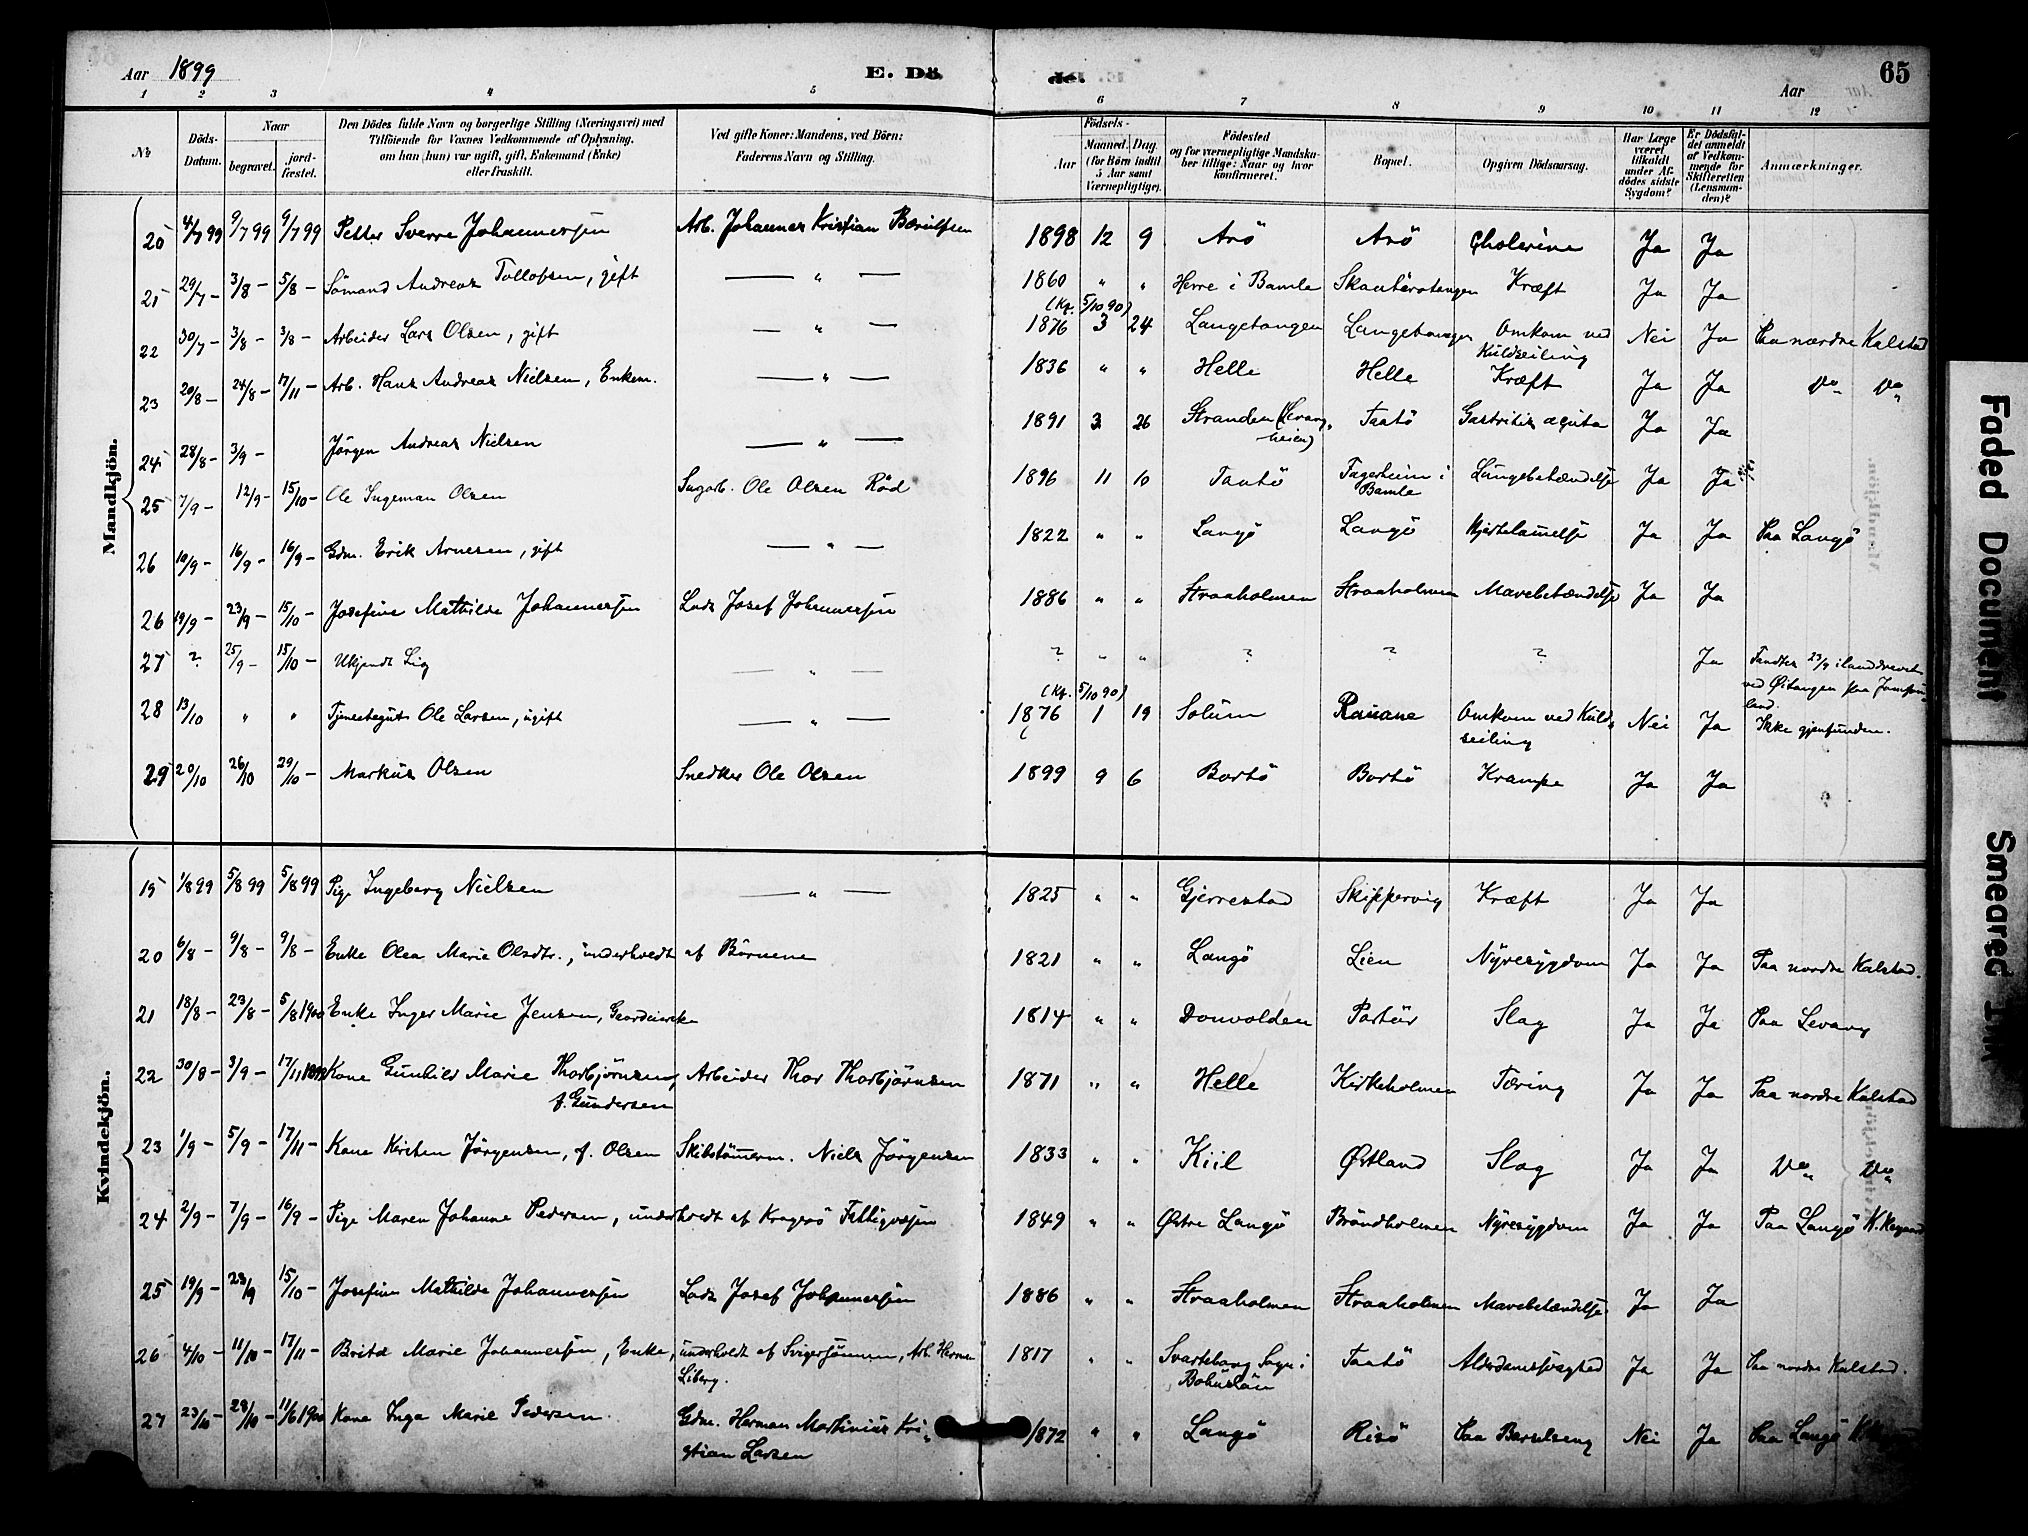 Aar 1899 E. Döde. Aar 65
1 2 3 4 5 6 7 8 9 10 11 12
No
Döds-Datum.
Naar
begravet.
jord-fæstet.
Den Dödes fulde Navn og borgerlige Stilling (Næringsvei) med
Tilföiende for Voxnes Vedkommende af Oplysning,
om han (hun) var ugift, gift, Enkemand (Enke)
eller fraskilt.
Ved gifte Koner: Mandens, ved Börn:
Faderens Navn og Stilling.
Födsels-
Aar
Maaned. Dag.
(for Börn indtil
5 Aar samt
Værnepligtige).
Födested
og for værnepligtige Mandska-
ber tillige: Naar og hvor
konfirmeret.
Bopæl.
Opgiven Dödsaarsag.
Har Læge
været
tilkaldt
under Af-
dödes sidste
Sygdom?
Er Dödsfal-
det anmeldt
af Vedkom-
mende for
Skifteretten
(Lensman-
den)?
Anmærkninger.
Mandkjön.
20 4/7 99 9/7 99 9/7 99 Petter Sverre Johannessen Arb. Johannes Kristian 1898 12 9 Arö Arö Cholerine Ja Ja
21 29/7 – 3/8 – 5/8 – Sömand Andreas Tollofsen, gift — " — 1860 " " Herre i Bamle Kræft Ja Ja
(Kf. 5/10 90)
22 30/7 – 3/8 – 3/8 – Arbeider Lars Olsen, gift — " — 1876 3 24 Langetangen Langetangen Omkom ved Nei Ja Paa nordre Kalstad
Kuldseiling
23 20/8 – 24/8 – 17/11 – Arb. Hans Andreas Nielsen, Enkem. — " — 1836 " " Helle Helle Kræft Ja Ja Do Do
24 28/8 – 3/9 – Jörgen Andreas Nielsen — " — 1891 3 26 Stranden Taatö Gastritis acuta Ja Ja
25 7/9 – 12/9 – 15/10 – Ole Ingeman Olsen Ole Olsen Röd 1896 11 10 Taatö Fagerheim i Lungebetændelse Ja Ja
Bamle
26 10/9 – 16/9 – 16/9 – Gdm. Erik Arnesen, gift — " — 1822 " " Langö Langö Hjertelamelse Ja Ja Paa Langö
26 19/9 – 23/9 – 15/10 – Josefine Mathilde Johannessen Lods Josef Johannessen 1886 " " Straaholmen Straaholmen Mavebetændelse Ja Ja
27 ? 25/9 – 15/10 – Ukjendt Lig — " — ? " " ? ? ? Ja Fandtes 23/9 ilanddrevet
ved Øitangen paa Jomfru-
land.
(Kf. 5/10 90)
28 13/10 " " Tjenestegut Ole Larsen, ugift — " — 1876 1 19 Solum Rauane Omkom ved Kuld- Nei Ja Ikke gjenfunden.
seiling
29 20/10 26/10 29/10 – Markus Olsen Snedker Ole Olsen 1899 9 6 Bortö Bortö Krampe Ja Ja
Kvindekjön.
19 1/8 99 5/8 99 5/8 99 Pige Ingeborg Nielsen — " — 1825 " " Gjerrestad Skippervig Kræft Ja Ja
20 6/8 – 9/8 – 9/8 – Enke Olea Marie Olsdtr., underholdt af Börnene 1821 " " Langö Lien Nyresygdom Ja Ja Paa nordre Kalstad.
21 18/8 – 23/8 – 5/8 1900 Enke Inger Marie Jensen, 1814 " " Donvolden Portör Slag Ja Ja Paa Levang
22 30/8 – 3/9 – 17/11 1899 Kone Gunhild Marie Thorbjörnsen, Arbeider Thor Thorbjörnsen 1871 " " Helle Kirkeholmen Tæring Ja Ja Paa nordre Kalstad
f. Gundersen
23 1/9 – 5/9 – 17/11 – Kone Kirsten Jörgensen, f. Olsen Skibstömerm. Niels Jörgensen 1833 " " Kiil Østland Slag Ja Ja Do Do
24 2/9 – 7/9 – 16/9 – Pige Maren Johanne Pedersen, underholdt af Kragerö Fattigvæsen 1849 " " Østre Langö Bröndholmen Nyresygdom Ja Ja Paa Langö
25 19/9 – 23/9 15/10 – Josefine Mathilde Johannessen Lods Josef Johannessen 1886 " " Straaholmen Straaholmen Mavebetændelse Ja Ja
26 4/10 – 11/10 – 17/11 – Brita Marie Johannessen, Enke, underholdt af Svigersönnen, Arb. 1817 " " Svarteborg Sogn i Taatö Alderdomssvaghed Ja Ja Paa nordre Kalstad.
Liberg. Bohuslän
27 23/10 – 28/10 – 11/6 1900 Kone Inga Marie Pedersen. Gdm. Herman Martinius Kri- 1872 " " Langö Risö Paa Barselseng Nei Ja Paa Langö
stian Larsen
Faded Document
Smeared Ink